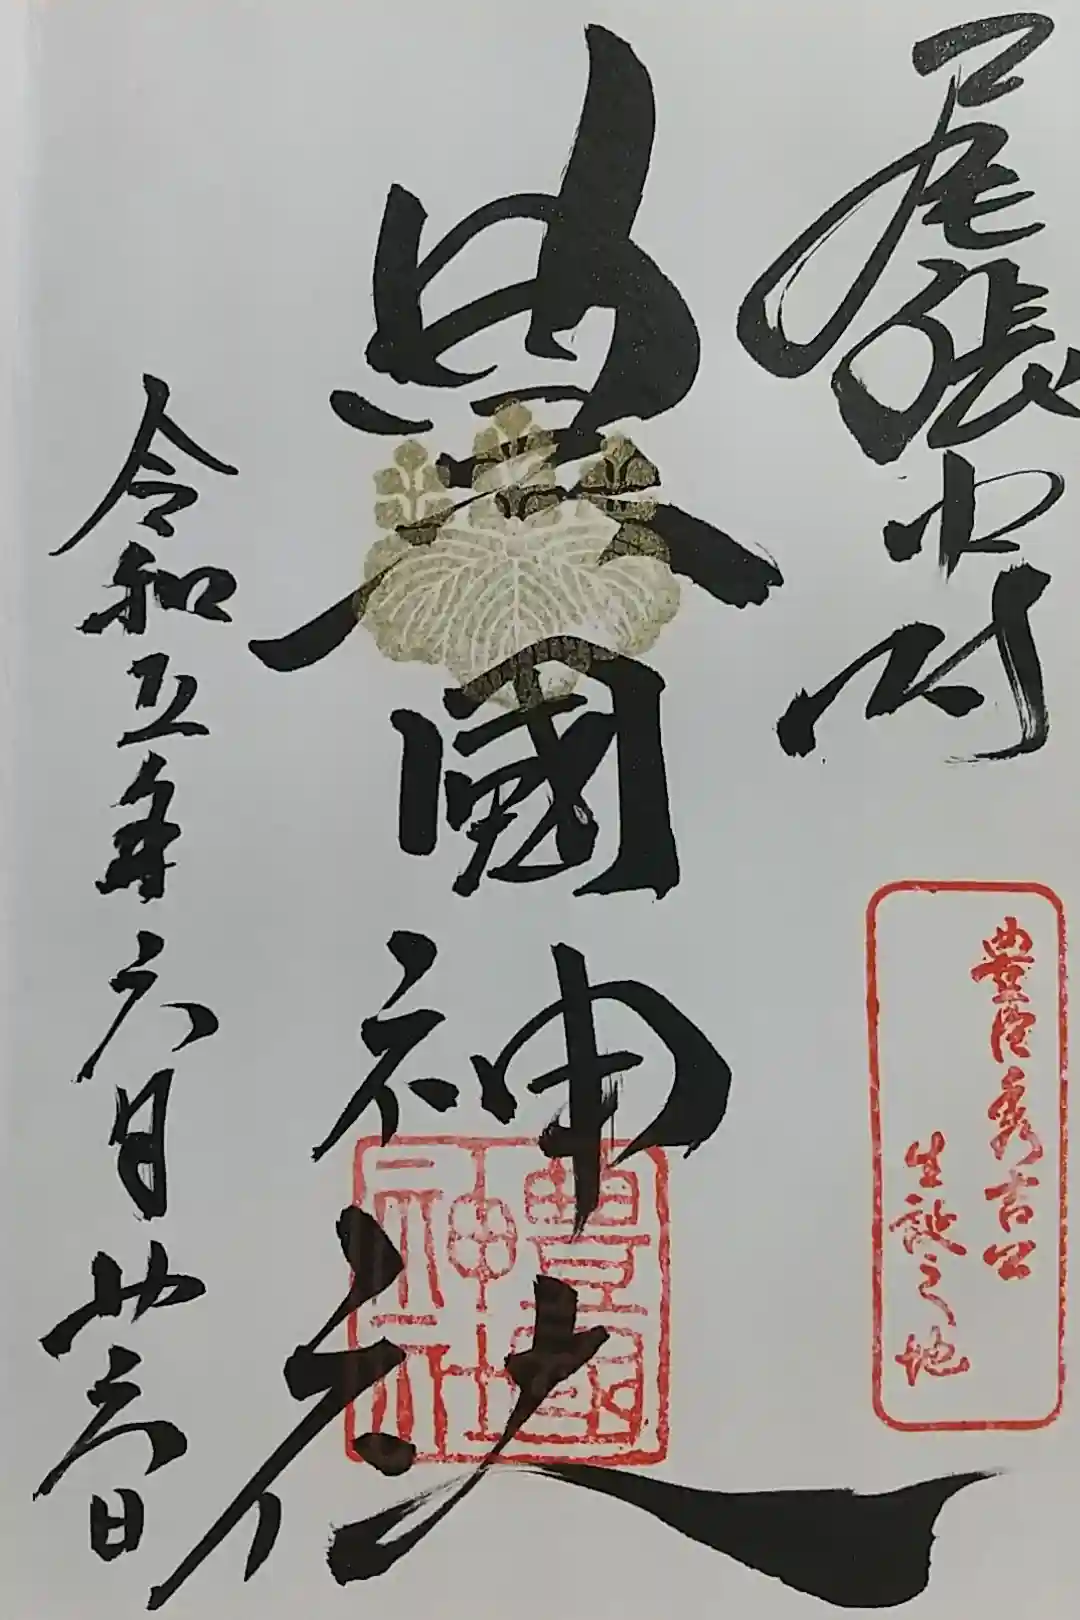 尾張中村
豊臣秀吉公
生誕之地
豊國神社
豊國
神社
令和五年六月廿六日